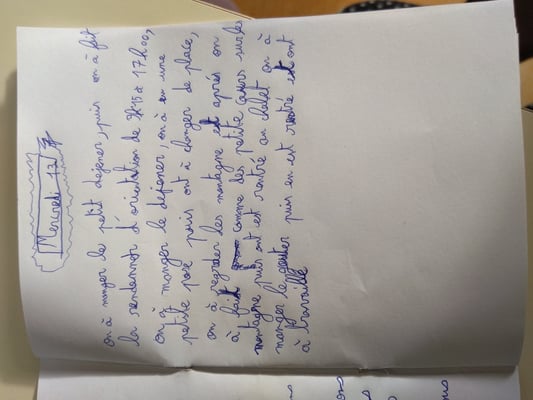 Mercredi 12
on à manger le petit dejener, puis on à fait
la randonnée d'orientation de 9h15 à 17h00,
on à manger le dejener, on à eu une
petite posé puis ont à changer de place,
on à regarder les montagne et après on
à fait comme des petite cours sur les
montagne puis ont est rentré au chalet on à
manger le gouter puis en est rentré et ont
à travaillé